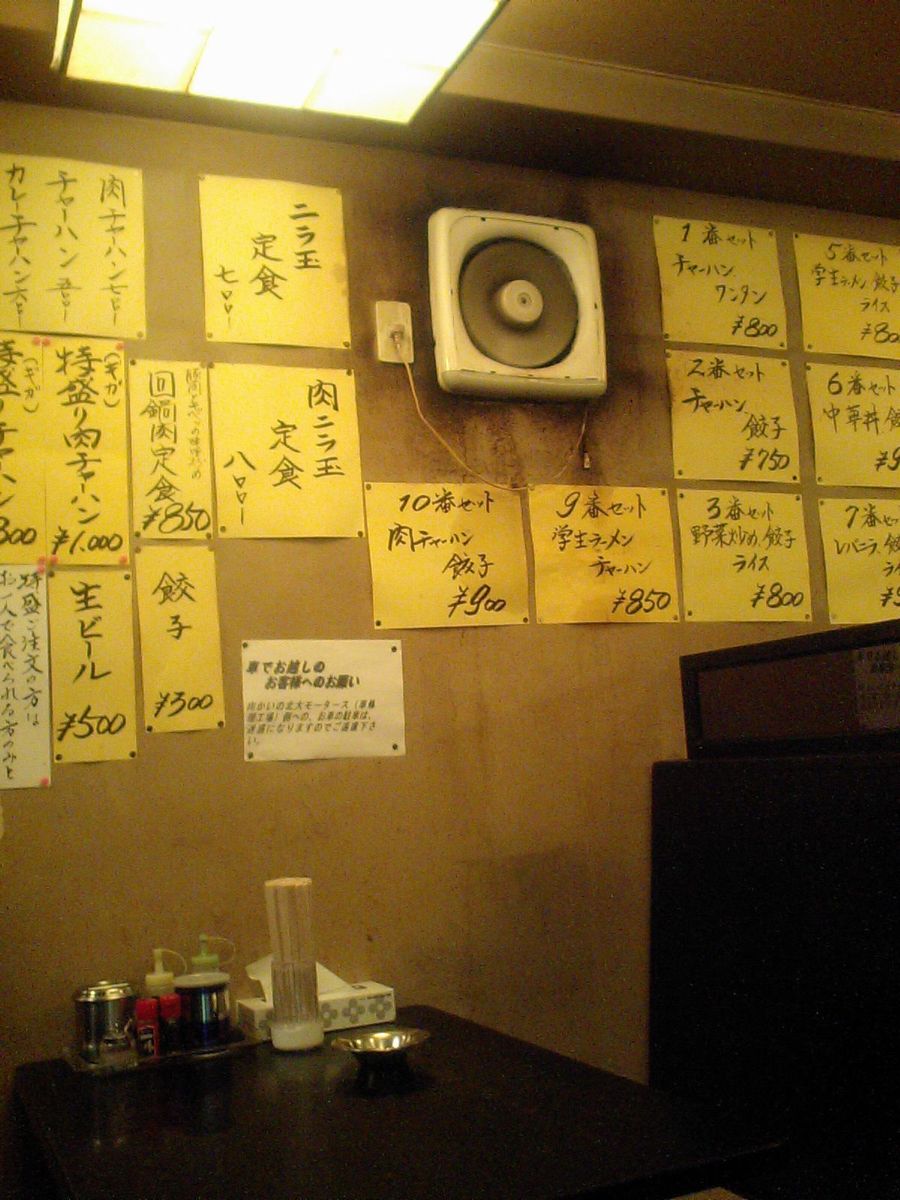 肉チャーハン七〇〇ー
チャーハン 五〇〇ー
カレーチャーハン六〇〇ー
ニラ玉
定食
七〇〇ー
(ギガ)
特盛り肉チャーハン
¥1,000
(ギガ)
特盛りチャーハン
800
回鍋肉定食
¥850
肉ニラ玉
定食
八〇〇ー
特盛ご注文の方は
お一人で食べられる方のみと
生ビール
¥500
餃子
¥300
車でお越しの
お客様へのお願い
向かいの北大モータース(車修
理工場)側への、お車の駐車は、
迷惑になりますのでご遠慮下さ
い。
1番セット
チャーハン
ワンタン
¥800
5番セット
学生ラーメン、餃子
ライス
¥80
2番セット
チャーハン
餃子
¥750
6番セット
中華丼
10番セット
肉チャーハン
餃子
¥900
9番セット
学生ラーメン
チャーハン
¥850
3番セット
野菜炒め、餃子
ライス
¥800
7番セッ
レバニラ、餃
ライ